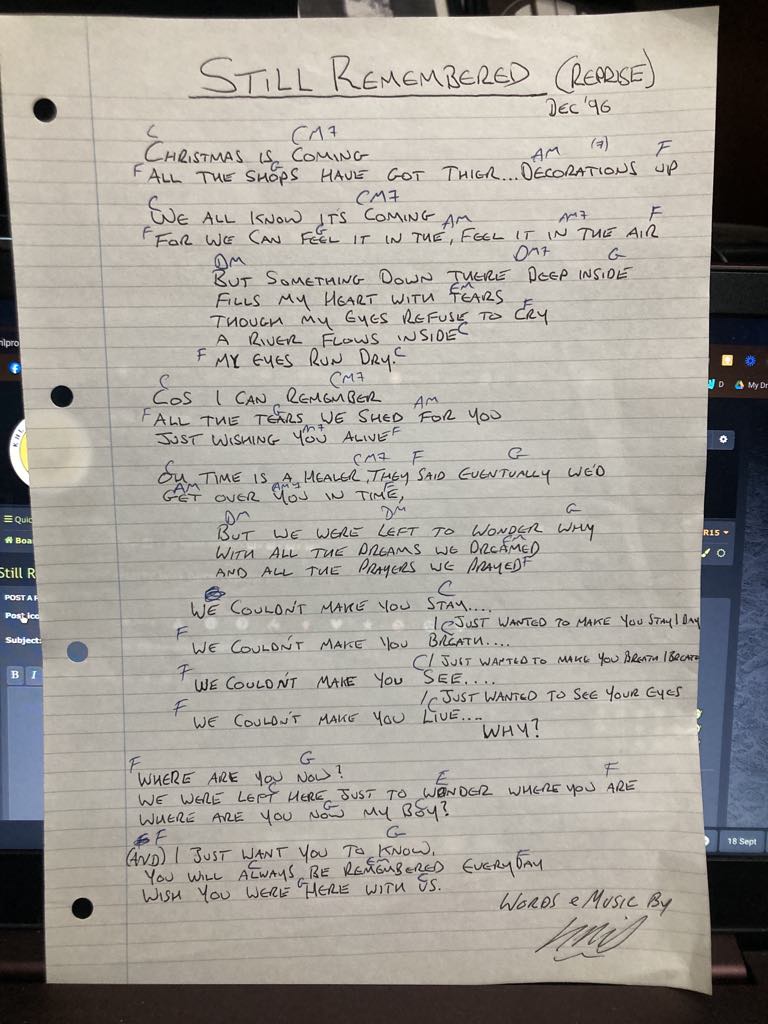 STILL REMEMBERED (REPRISE)
DEC '96
C CM7
CHRISTMAS IS COMING
F G AM (7) F
ALL THE SHOPS HAVE GOT THIER... DECORATIONS UP
C CM7
WE ALL KNOW IT'S COMING
F G AM AM7 F
FOR WE CAN FEEL IT IN THE, FEEL IT IN THE AIR
DM DM7 G
BUT SOMETHING DOWN THERE DEEP INSIDE
EM
FILLS MY HEART WITH TEARS
F
THOUGH MY EYES REFUSE TO CRY
A RIVER FLOWS INSIDE C
F MY EYES RUN DRY. C
C CM7
COS I CAN REMEMBER
F G AM
ALL THE TEARS WE SHED FOR YOU
M7
JUST WISHING YOU ALIVE F
C CM7 F G
OH TIME IS A HEALER, THEY SAID EVENTUALLY WE'D
AM AM7 F
GET OVER YOU IN TIME,
DM DM G
BUT WE WERE LEFT TO WONDER WHY
EM
WITH ALL THE DREAMS WE DREAMED
AND ALL THE PRAYERS WE PRAYED F
C
WE COULDN'T MAKE YOU STAY....
C I JUST WANTED TO MAKE YOU STAY 1 DAY
F
WE COULDN'T MAKE YOU BREATH....
C I JUST WANTED TO MAKE YOU BREATH 1 BREATH
F
WE COULDN'T MAKE YOU SEE....
C I JUST WANTED TO SEE YOUR EYES
F
WE COULDN'T MAKE YOU LIVE....
WHY?
F G
WHERE ARE YOU NOW?
C E F
WE WERE LEFT HERE JUST TO WONDER WHERE YOU ARE
G C
WHERE ARE YOU NOW MY BOY?
F G
(AND) I JUST WANT YOU TO KNOW.
C EM F
YOU WILL ALWAYS BE REMEMBERED EVERYDAY
G C
WISH YOU WERE HERE WITH US.
WORDS & MUSIC BY
Quic
Boa
Still R
POST A
Post ico
Subject:
B I
D
My Dr
R15
18 Sept